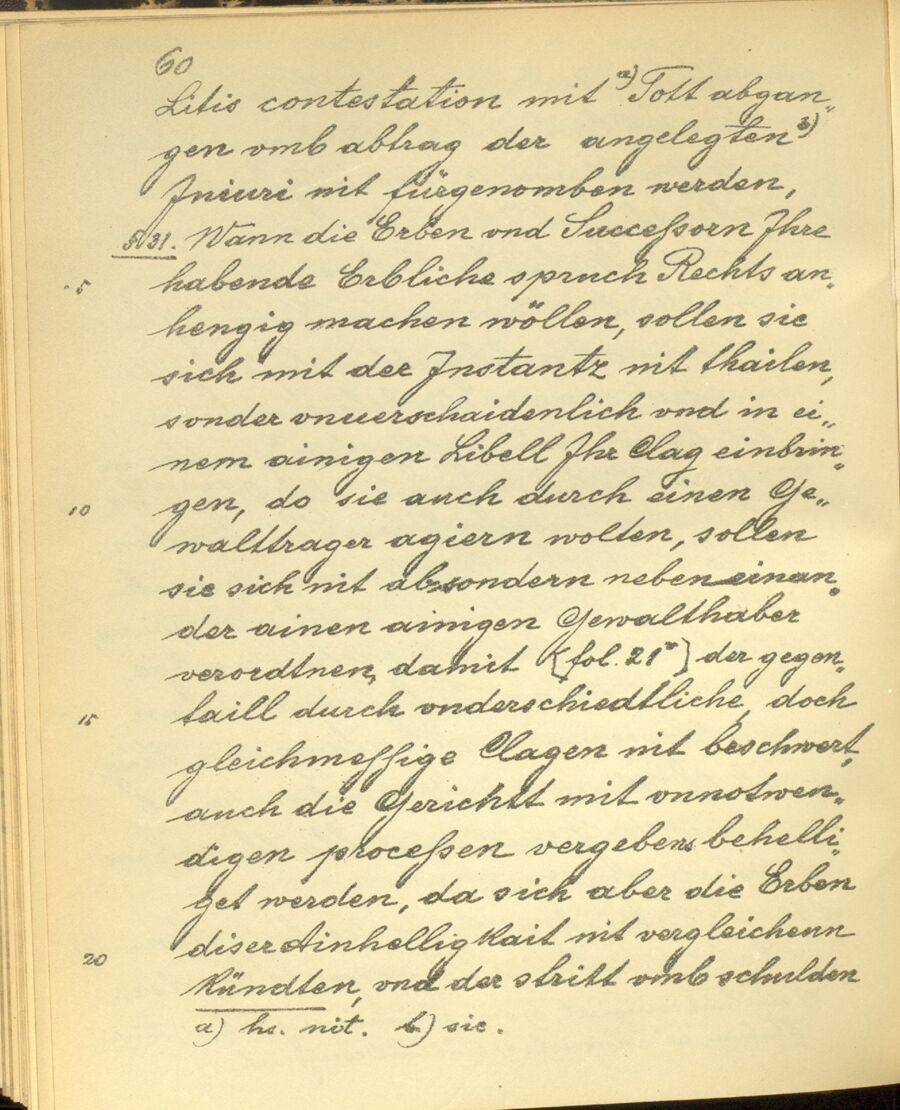 60
Litis contestation mit a) Tott abgan„
gen vmb abtrag der angelegten b)
Iniuri nit fürgenomben werden,
§ 31. Wann die Erben vnd Successorn Ihre
5 habende Erbliche spruch Rechts an„
hengig machen wöllen, sollen sie
sich mit der Instantz nit thailen,
sonder vnuerschaidenlich vnd in ei„
nem ainigen Libell Ihr Clag einbrin„
10 gen, do sie auch durch einen Ge„
walttrager agiern wolten, sollen
sie sich nit absondern neben einan„
der ainen ainigen Gewalthaber
verordtnen, damit [fol. 21v] der gegen„
15 taill durch vnderschiedtliche, doch
gleichmessige Clagen nit beschwert,
auch die Gerichtt mit vnnotwen„
digen processen vergebens behelli„
get werden, da sich aber die Erben
20 diser Ainhelligkait nit vergleichenn
kündten, vnd der stritt vmb schulden
a) hs. nit. b) sic.